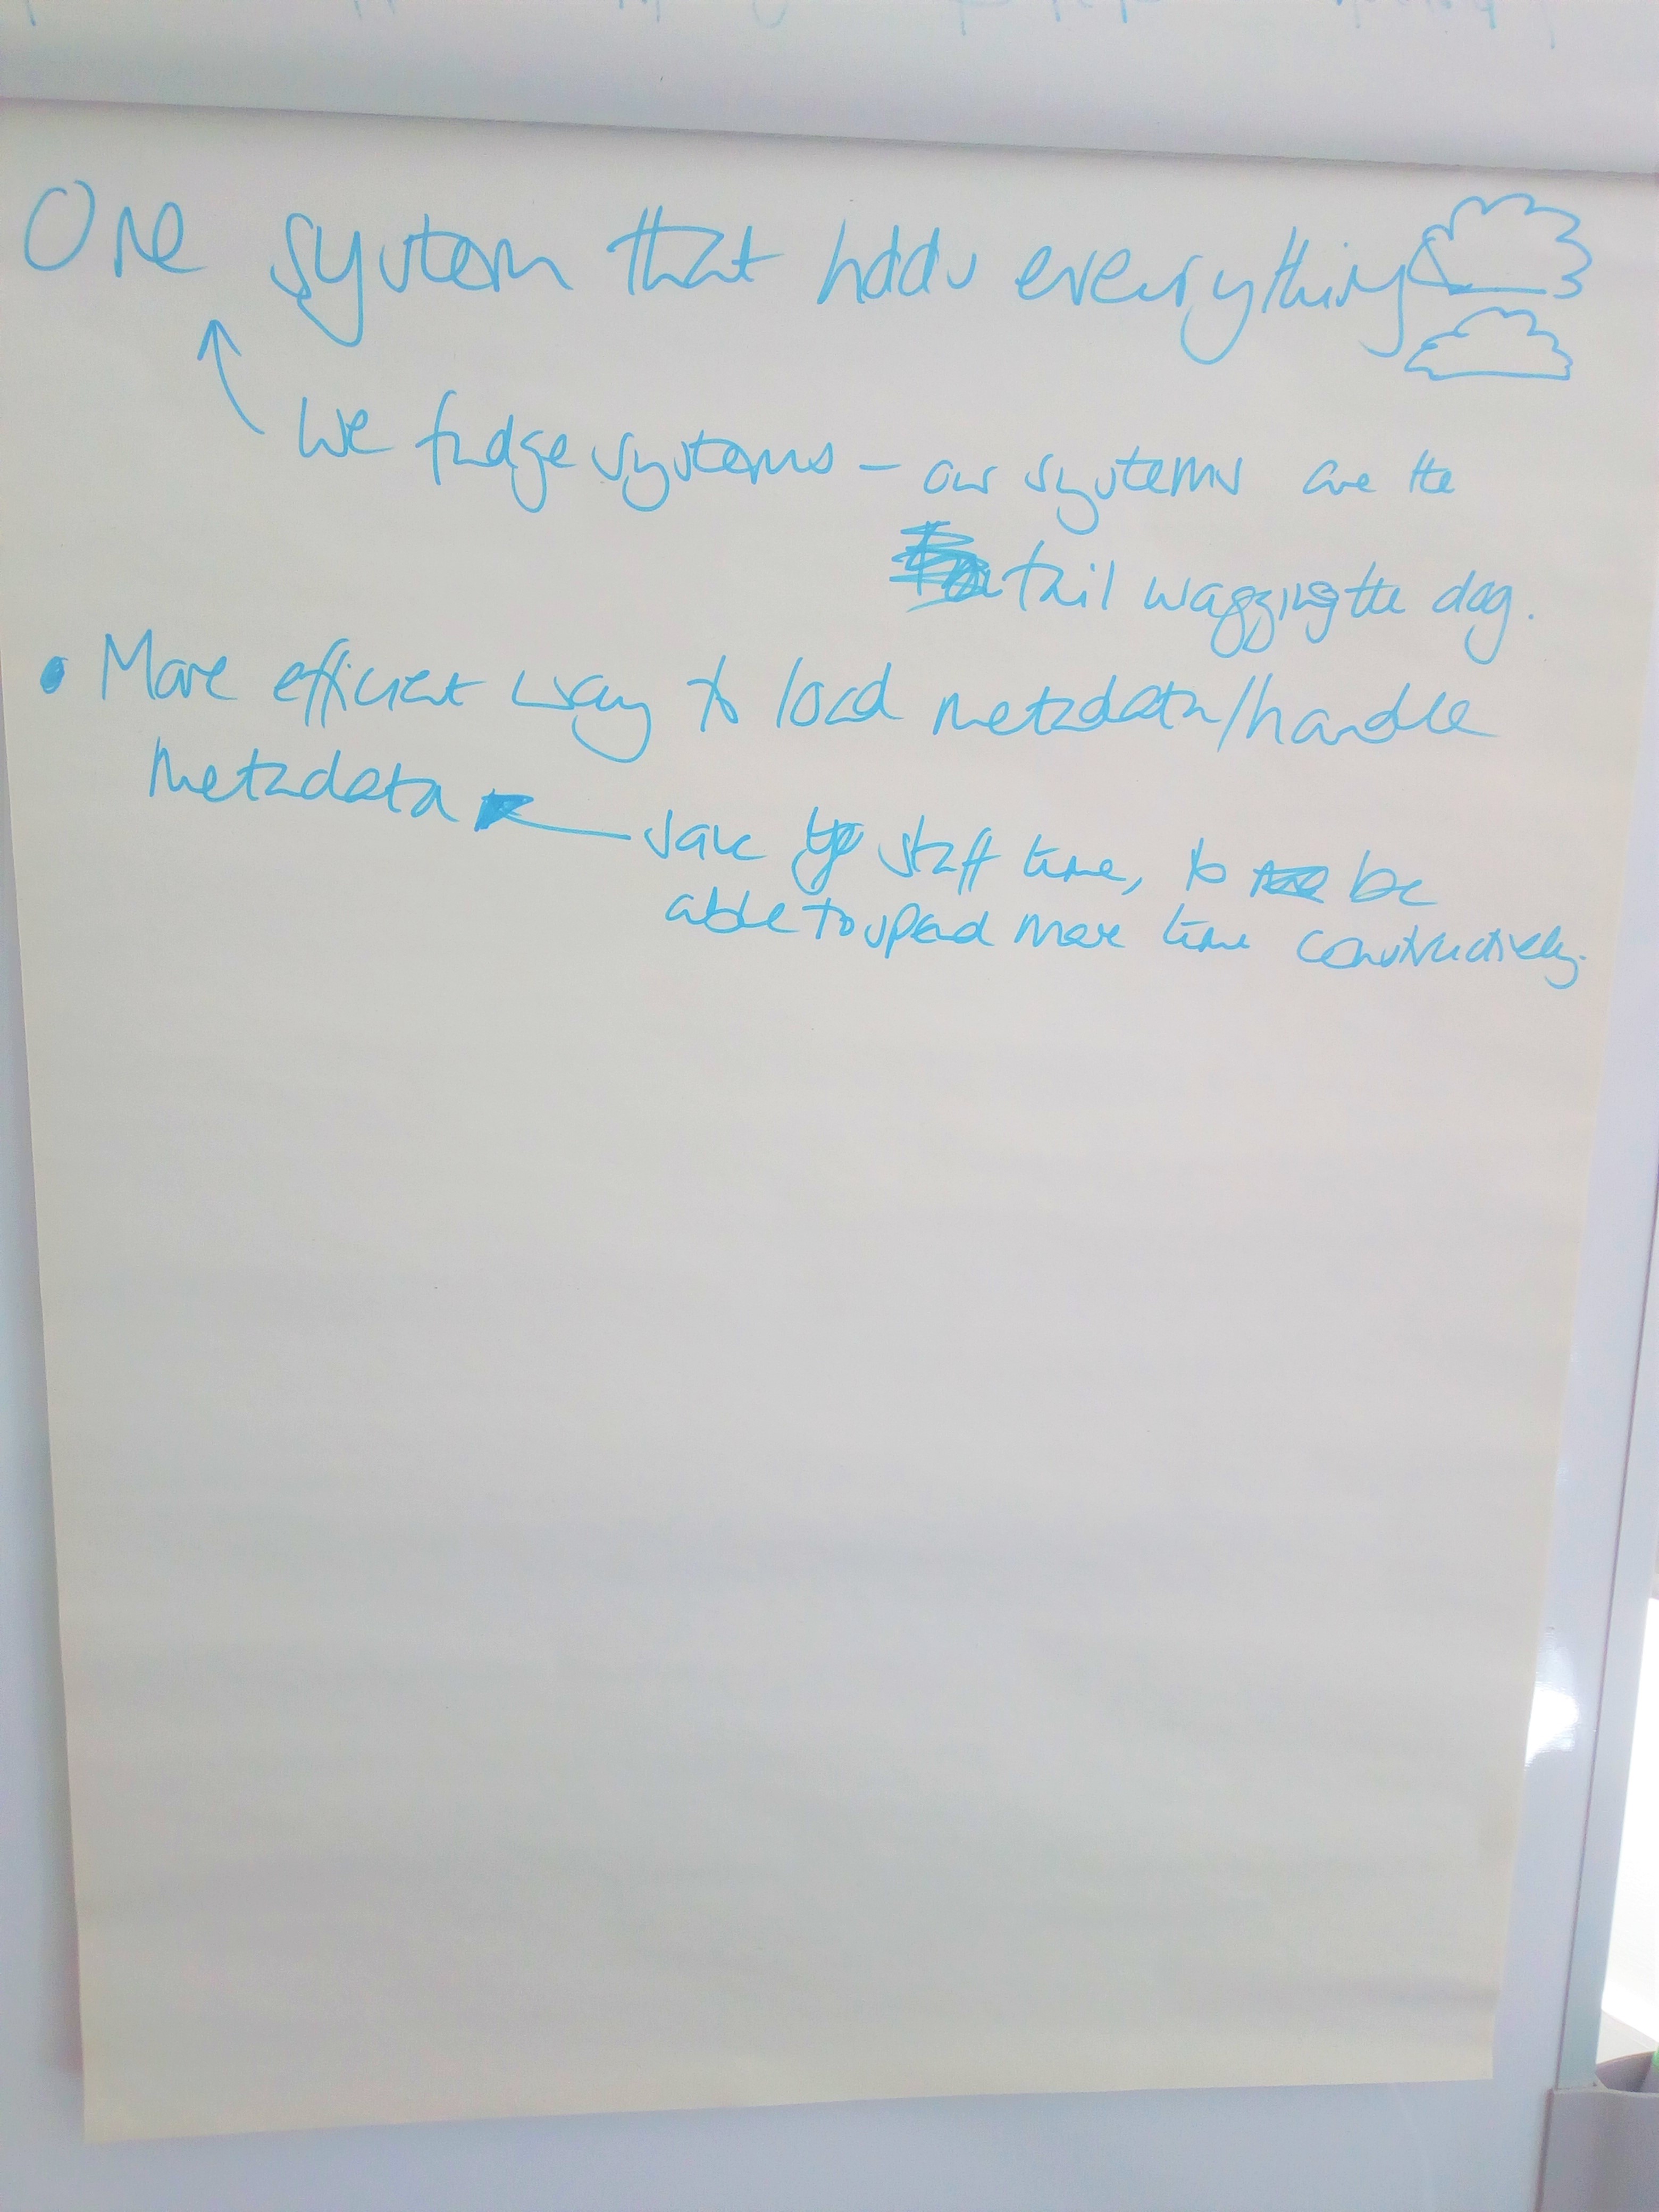 One system that holds everything
We fudge systems – our systems are the
tail wagging the dog.
• More efficient way to load metadata/handle
metadata
save staff time, to be
able to spend more time constructively.